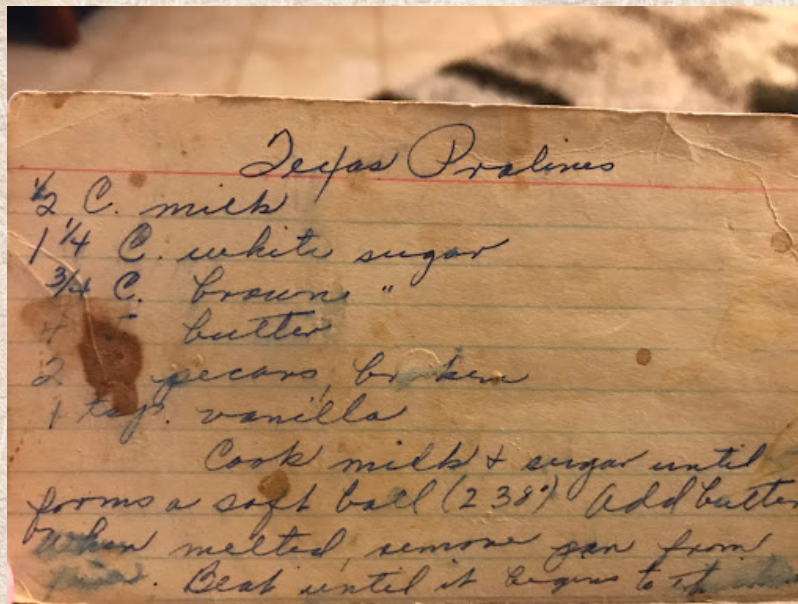 Texas Pralines
1/2 C. milk
1 1/4 C. white sugar
3/4 C. brown "
4 butter
2 pecans, broken
1 tsp. vanilla
Cook milk & sugar until
forms a soft ball (238°) Add butter
When melted, remove pan from
. Beat until it begins to